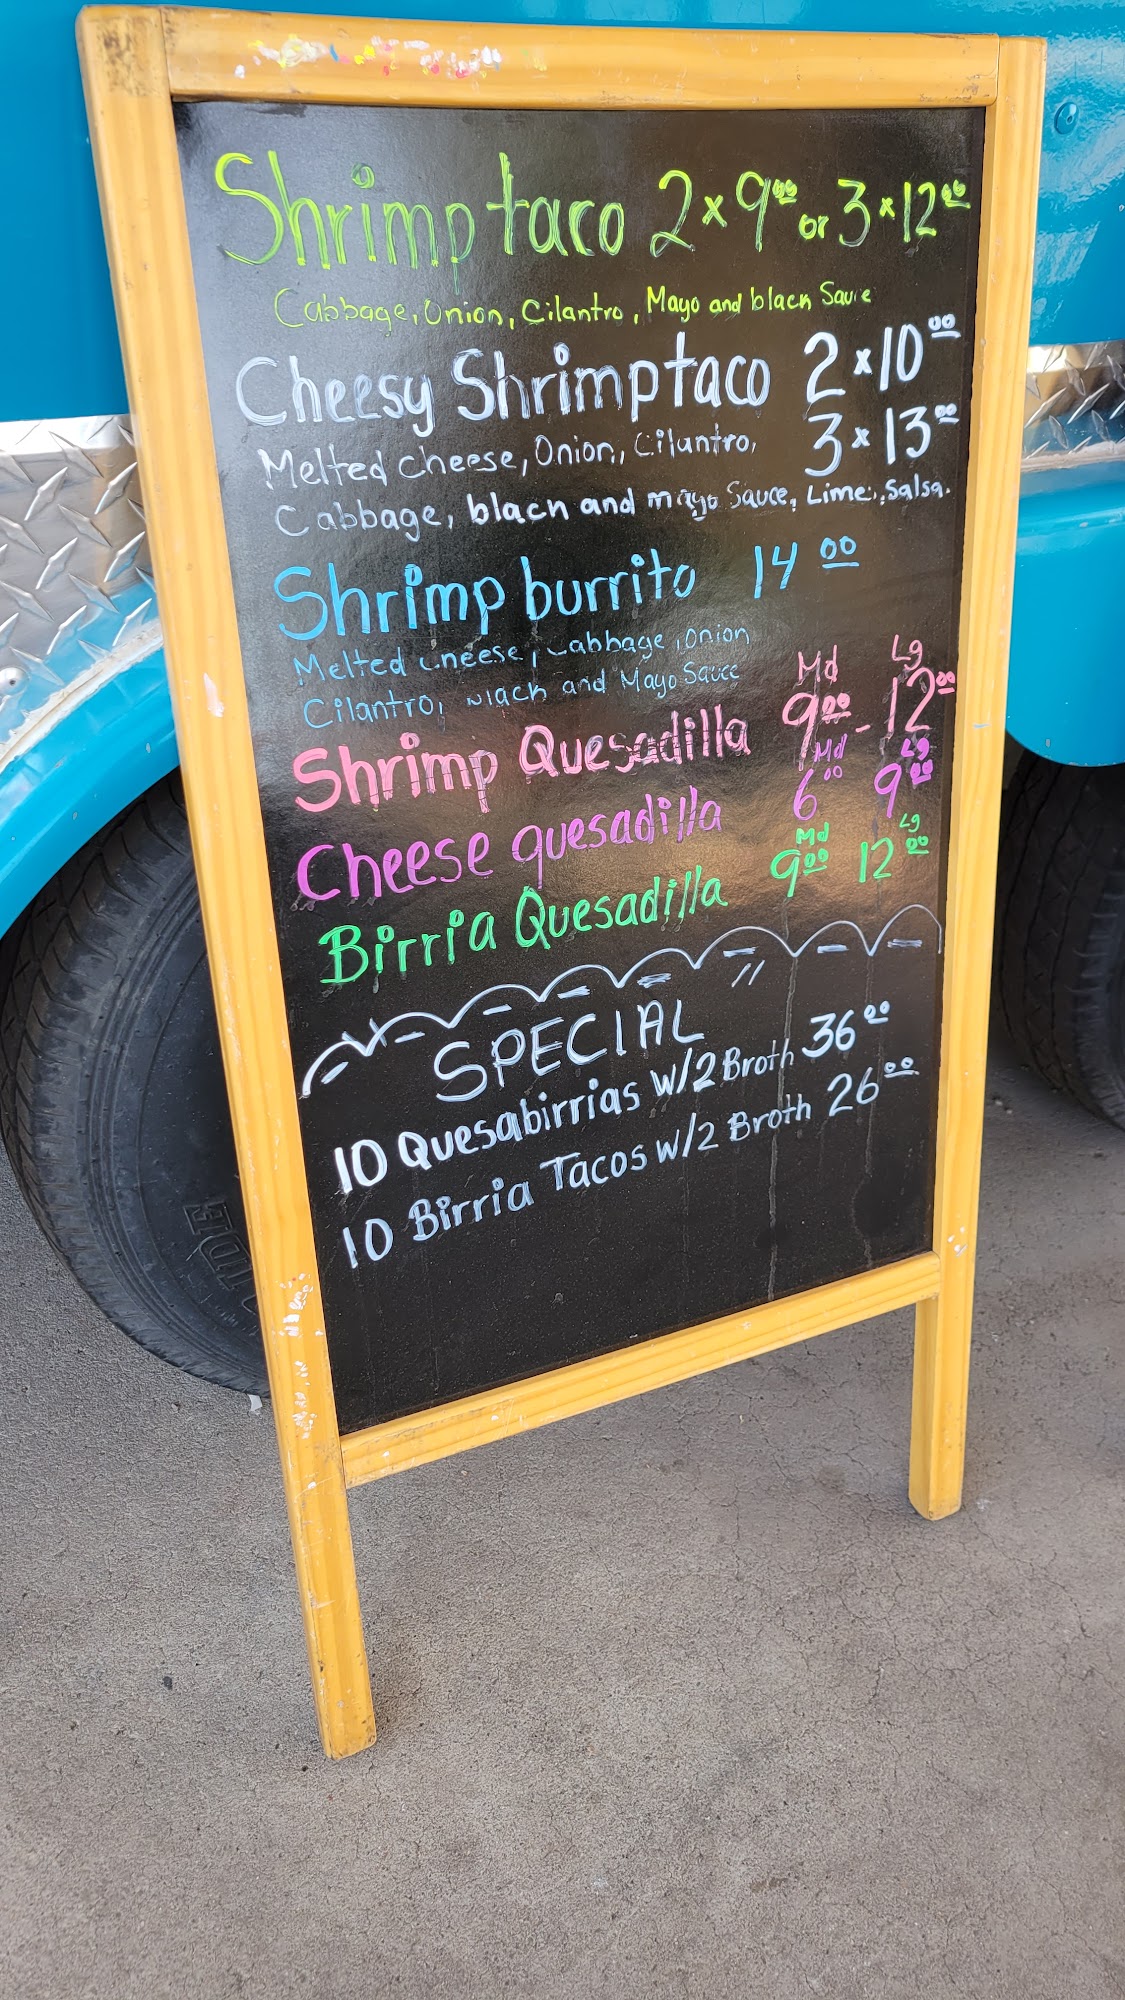 Shrimp taco 2x9 00 or 3x12 00
Cabbage, Onion, Cilantro, Mayo and black Sauce
Cheesy Shrimp taco 2x10 00
3x13 00
Melted cheese, Onion, Cilantro,
Cabbage, black and mayo Sauce, Lime, Salsa.
Shrimp burrito 14 00
Melted cheese, Cabbage, Onion
Cilantro, black and Mayo Sauce
Md Lg
Shrimp Quesadilla 9 00 - 12 00
Md Lg
Cheese quesadilla 6 00 9 00
Md Lg
Birria Quesadilla 9 00 12 00
SPECIAL
10 Quesabirrias W/2 Broth 36 00
10 Birria Tacos W/2 Broth 26 00